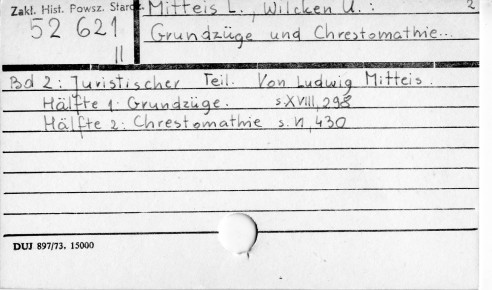 Zakł. Hist. Powsz. Staroż.
Mitteis L., Wilcken U.: 2
52 621
II
Grundzüge und Chrestomathie...
Bd 2: Juristischer Teil. Von Ludwig Mitteis.
Hälfte 1. Grundzüge. s. XVIII, 298
Hälfte 2: Chrestomathie s. VI, 430
DUJ 897/73. 15000